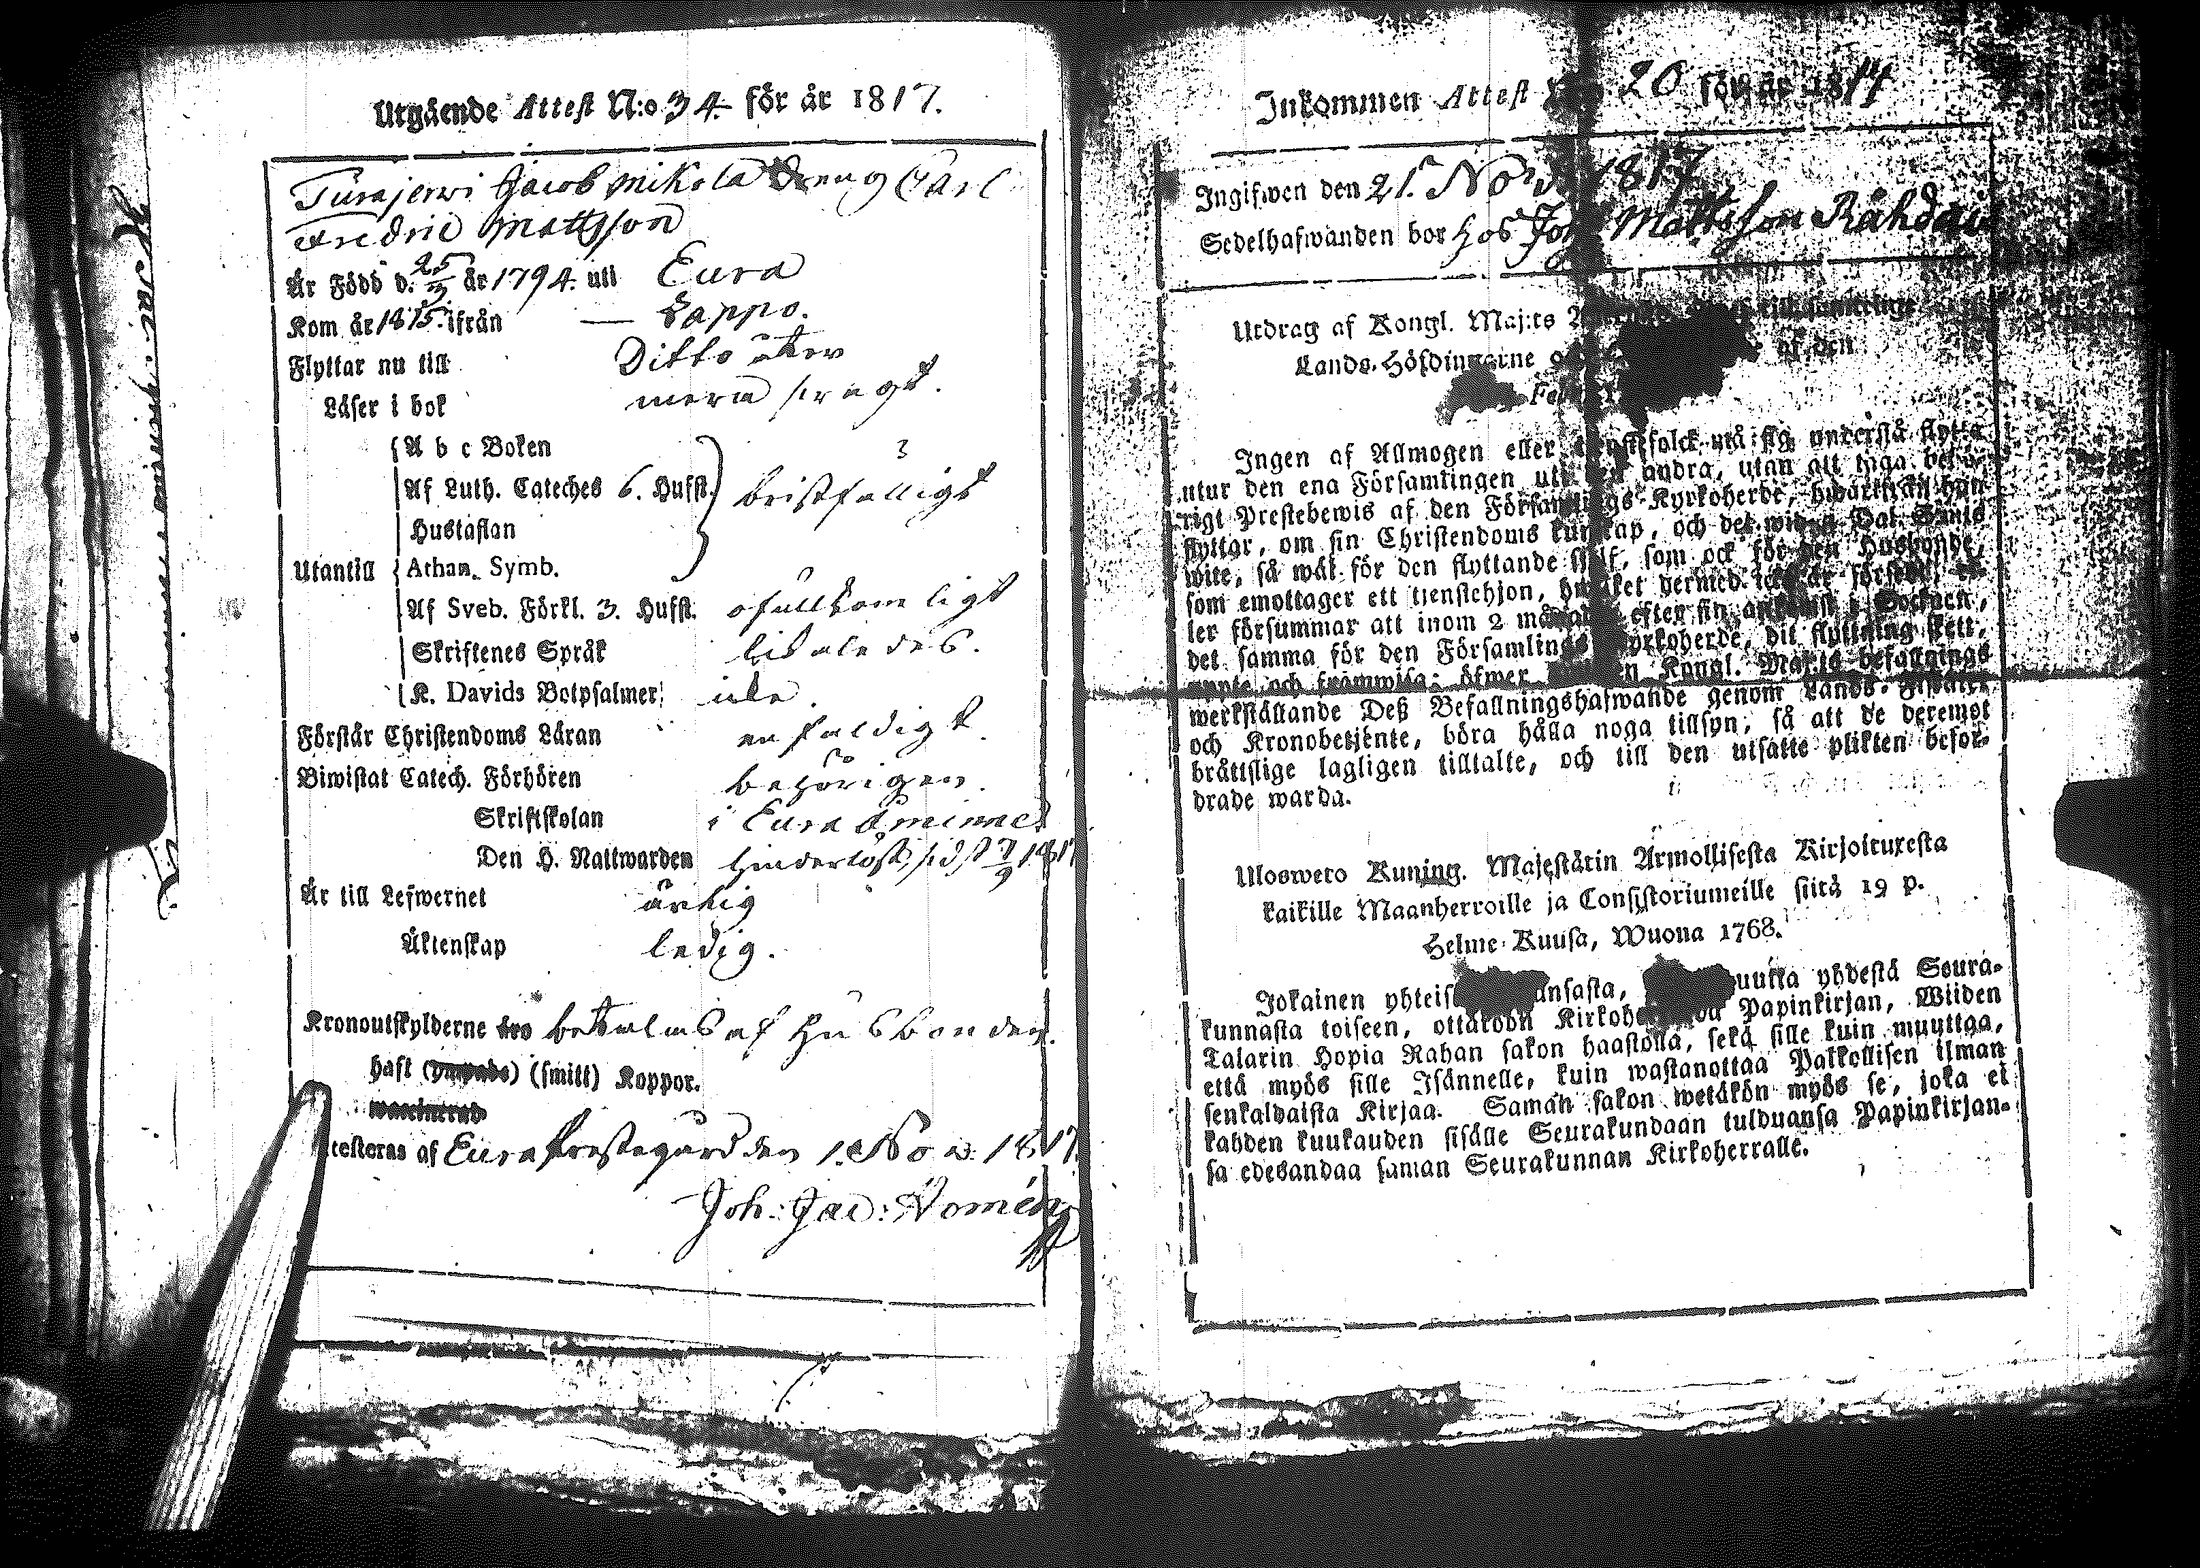 Utgående Attest N:o 34. för år 1817.
Turajerwi Jacob Mikola Dreng Carl
Fredric Mattsson
Är Född d. 25/3 år 1794. uti Eura
Kom år 1815. ifrån — Lappo.
Flyttar nu till Ditto åter
Läser i bok mera swagt.
A b c Boken
Af Luth. Cateches 6. Hufst. bristfälligt
Hustaflan
Utantill Athan. Symb.
Af Sveb. Förkl. 3. Hufst. ofullkomligt
Skriftenes Språk likaledes.
K. Davids Botpsalmer icke.
Förstår Christendoms Läran enfaldigt.
Biwistat Catech. Förhören behörigen.
Skriftskolan i Eura Åminne
Den H. Nattwarden hinderlöst, sidst 7/9 1817
Är till Lefwernet ärlig
Äktenskap ledig.
Kronoutskylderne äro betalas af Husbonden.
haft (ympade) (smitt) Koppor.
Attesteras af Eura Prestegård den 1. Nov. 1817.
Joh: Jac: Nomén
Inkommen Attest 20 för år 1817
Ingifwen den 21. Nov. 1817
Sedelhafwanden bor hos Joh Mattsson Råhdai
Utdrag af Kongl. Maj:ts
Lands-Höfdingarne af den
Ingen af Allmogen eller tjenstefolck må sig understå flytta
utur den ena Församlingen uti den andra, utan att taga behö-
rigt Prestebewis af den Församlings Kyrkoherde, hwarifrån han
flyttar, om sin Christendoms kunskap, och det wid 5 Dal. S:mts
wite, så wäl för den flyttande sjelf, som ock för den Husbonde,
som emottager ett tjenstehjon, hwilket dermed icke är försedt, el-
ler försummar att inom 2 månader efter sin ankomst i Socknen,
det samma för den Församlings Kyrkoherde, dit flyttning skett,
uppte och framwisa; öfwer Kongl. Maj:ts befallnings
werkställande Deß Befallningshafwande genom Lands-Fiskaler
och Kronobetjente, böra hålla noga tillsyn, så att de deremot
bråttslige lagligen tilltalte, och till den utsatte plikten befor-
drade warda.
Ulosweto Kuning. Majestätin Armollisesta Kirjoituxesta
kaikille Maanherroille ja Consistoriumeille siitä 19 p.
Helme-Kuusa, Wuona 1768.
Jokainen yhteis ansasta, uutta yhdestä Seura-
kunnasta toiseen, ottakoon Kirkoh Papinkirjan, Wiiden
Talarin Hopia Rahan sakon haastolla, sekä sille kuin muuttaa,
että myös sille Isännelle, kuin wastanottaa Palkollisen ilman
senkaldaista Kirjaa. Saman sakon wetäkön myös se, joka ei
kahden kuukauden sisälle Seurakundaan tulduansa Papinkirjan-
sa edesandaa saman Seurakunnan Kirkoherralle.